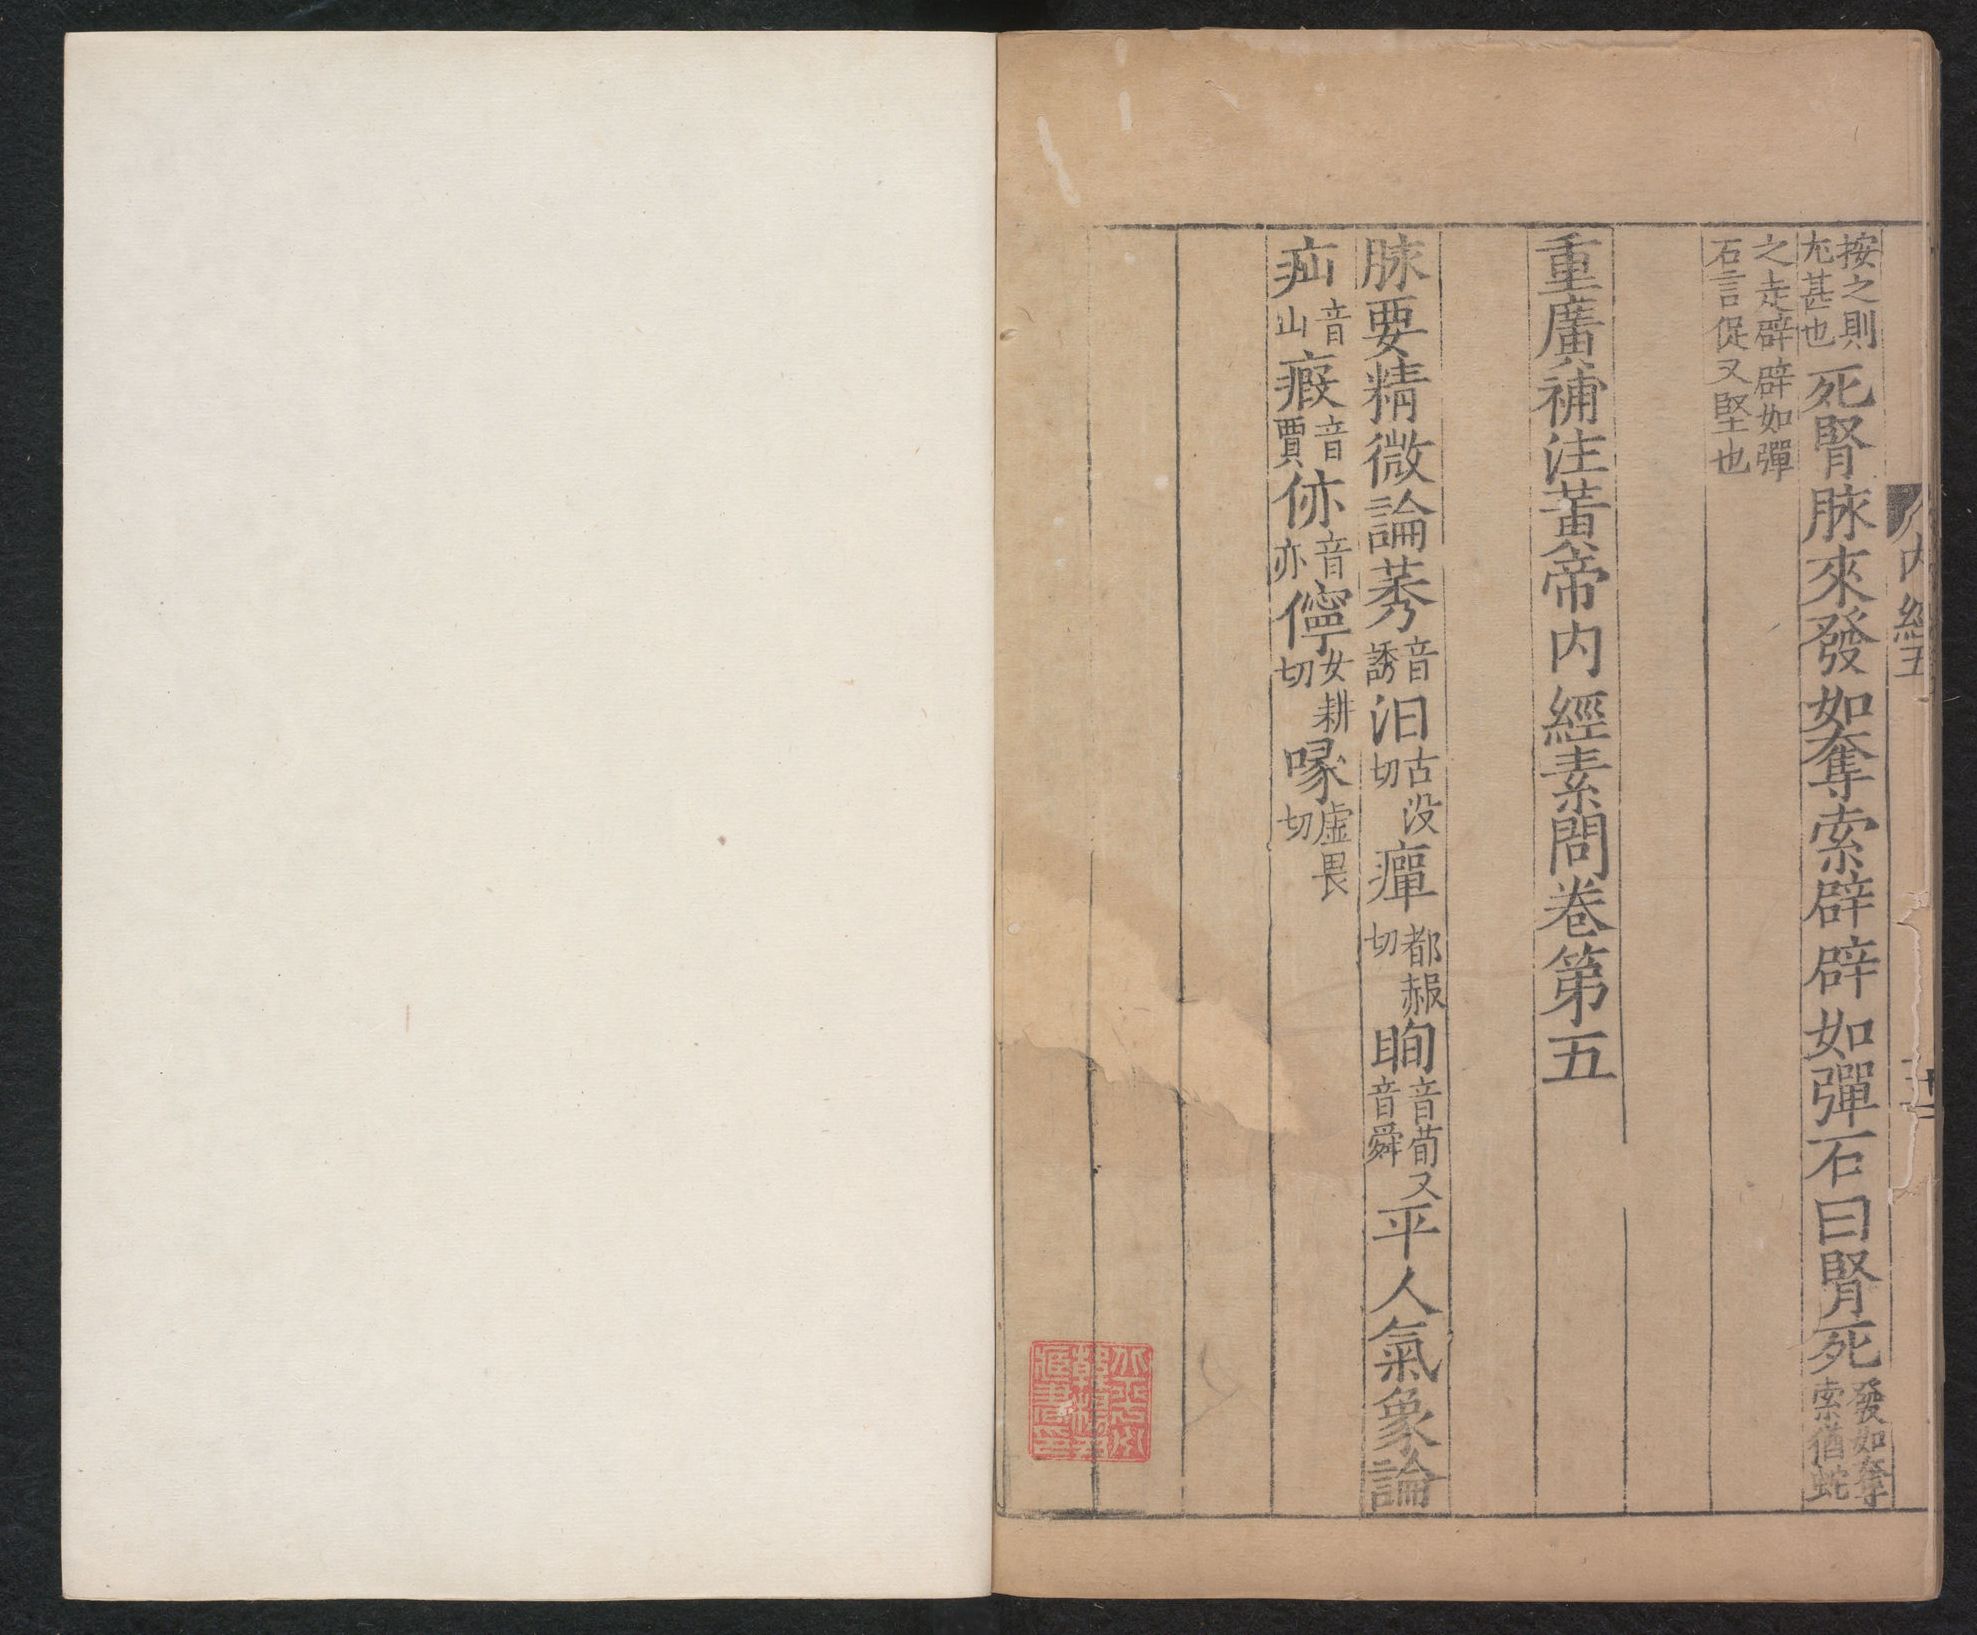 内經五
按之則尤甚也死腎脉來發如奪索辟辟如彈石曰腎死發如奪索猶蛇
之走辟辟如彈石言促又堅也
重廣補注黃帝内經素問卷第五
脉要精微論莠音誘汩古没切癉都赧切眴音荀又音舜平人氣象論
疝音山瘕音賈㑊音亦儜女耕切喙虛畏切